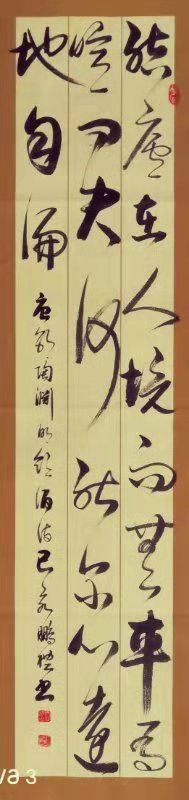 結廬在人境而無車馬
喧問君何能爾心遠
地自偏
陶淵明飲酒詩己亥鵬書
va 3